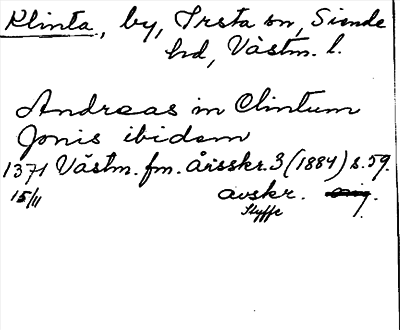 Klinta, by, Irsta sn, Siende
hd, Västm. l.
Andreas in Clintum
Jonis ibidem
1371 Västm. fm. årsskr. 3 (1884) s. 59.
15/11 avskr. orig.
Styffe